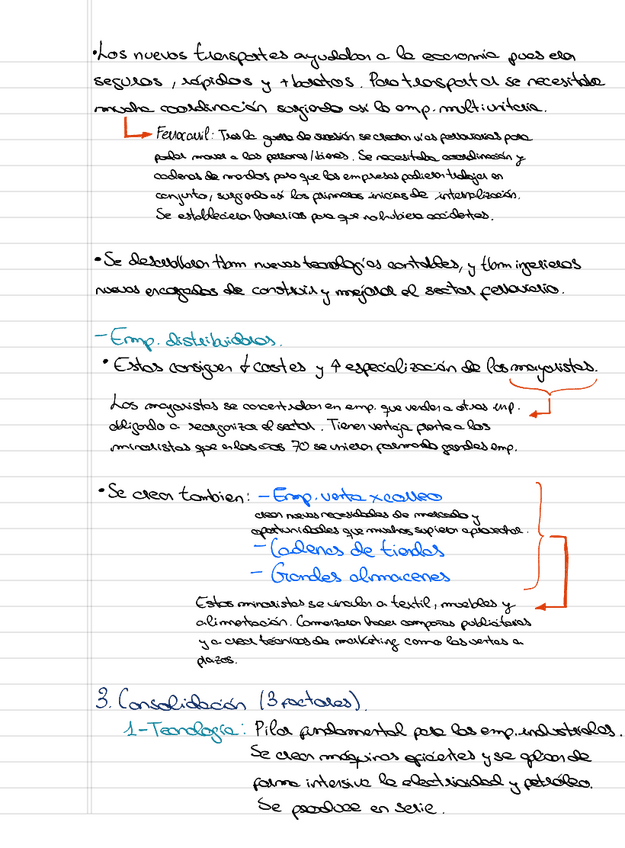 •Los nuevos transportes ayudaban a la economía pues eran
seguros, rápidos y + baratos. Para transportar se necesitaba
mucha coordinación surgiendo así la emp. multiunitaria.
Ferrocarril: Tras la guerra de secesión se crearon vías ferroviarias para
poder mover a las personas/bienes. Se necesitaba coordinación y
cadenas de mandos para que las empresas pudieran trabajar en
conjunto, surgiendo así los primeros inicios de internalización.
Se establecieron horarios para que no hubiera accidentes.
•Se desarrollaron tbm nuevas tecnologías contables, y tbm ingenieros
nuevos encargados de construir y mejorar el sector ferroviario.
- Emp. distribuidoras.
• Estas consiguen ↓ costes y ↑ especialización de los mayoristas.
Los mayoristas se concentraban en emp. que venden a otras emp.
obligando a reorganizar el sector. Tienen ventaja frente a los
minoristas que en los años 70 se unieron formando grandes emp.
•Se crean tambien: - Emp. venta x correo
crean nuevas necesidades de mercado y
oportunidades que muchos supieron aprovechar.
- Cadenas de tiendas
- Grandes almacenes
Estos minoristas se vinculan a textil, muebles y
alimentación. Comenzaron hacer campañas publicitarias
y a crear técnicas de marketing como las ventas a
plazos.
3. Consolidación (3 factores).
1-Tecnología: Pilar fundamental para las emp. industriales.
Se crean máquinas eficientes y se aplican de
forma intensiva la electricidad y petróleo.
Se produce en serie.